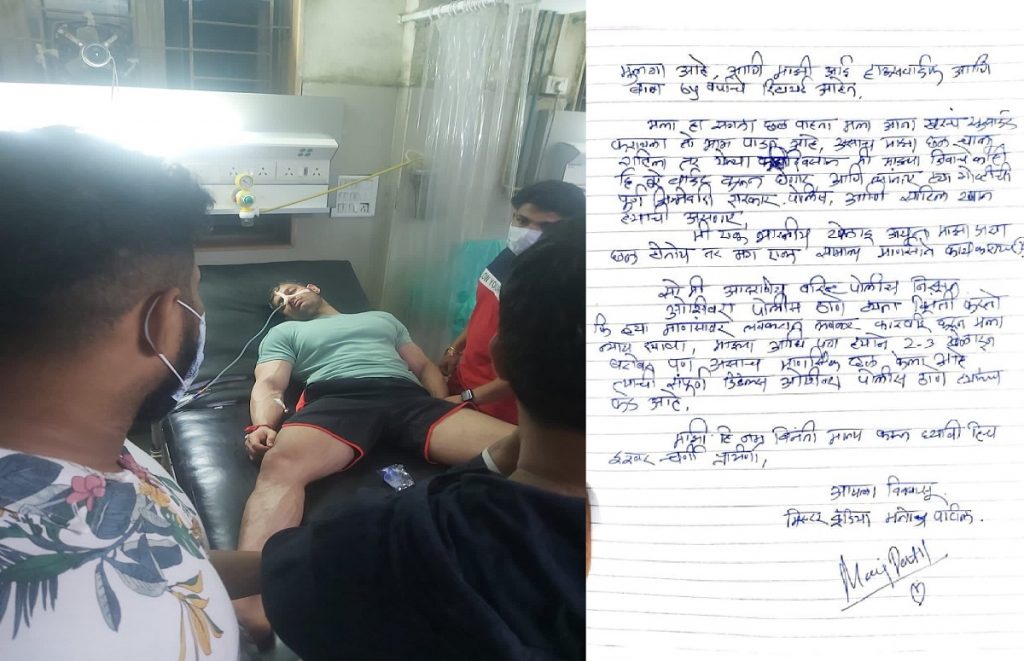 मुलगा आहे, आणि माझी आई हाऊसवाईफ आणि
बाबा वर्षाचे रिटायर्ड आहेत.
मला हा सगळा छळ पाहता मला आता
करायला तो भाग पाडत आहे, असाच माझा छळ चालू
राहिला तर येत्या दिवसात मी माझ्या जिवाचं काही
हि बरे वाईट करून घेणार आणि त्यानंतर ह्या गोष्टीची
पूर्ण जिम्मेदारी सरकार, पोलिस, आणि साहिल खान
ह्याची असणार,
मी एक भारतीय खेळाडू असून माझा असा
छळ होतोय तर मग एका सामान्य माणसाने काय करायचं?
तरी मी आदरणीय वरिष्ठ पोलीस निरीक्षक
ओशिवरा पोलीस ठाणे ह्यांना विनंती करतो
कि ह्या माणसावर लवकरात लवकर कारवाई करून मला
न्याय द्यावा, माझ्या आधि पण ह्याने 2-3 खेळाडू
बरोबर पण असाच मानसिक छळ केला आहे
त्याची संपूर्ण डिटेल्स ओशिवरा पोलीस ठाणे ह्यांच्या
कडे आहे.
माझी हि नम्र विनंती मान्य करून घ्यावी हिच
ईश्वर चरणी प्रार्थना,
आपला विश्वासू
मिस्टर इंडिया मनोज पाटील.
Manoj Patil